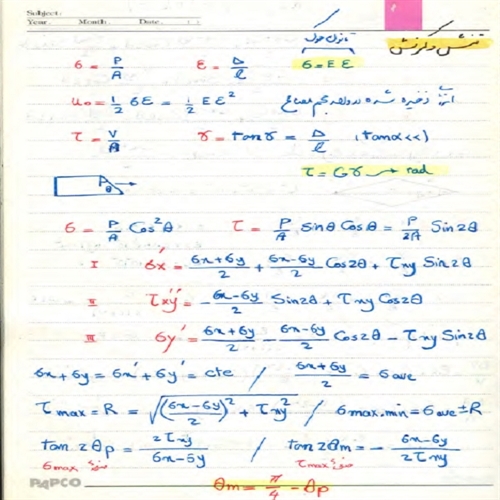 Subject:
Year. Month. Date.
تنش و کرنش
قانون هوک
σ = P/A ε = Δ/l σ = E ε
u₀ = 1/2 σε = 1/2 E ε² انرژی ذخیره شده در واحد حجم مصالح
τ = V/A γ = tanγ = Δ/l (tanα<<)
τ = Gγ → rad
P θ
σ = P/A Cos²θ τ = P/A sinθ Cosθ = P/2A Sin2θ
I σx′ = (σx+σy)/2 + (σx-σy)/2 Cos2θ + τxy Sin2θ
II τx′y′ = -(σx-σy)/2 Sin2θ + τxy Cos2θ
III σy′ = (σx+σy)/2 - (σx-σy)/2 Cos2θ - τxy Sin2θ
σx+σy = σx′+σy′ = cte / (σx+σy)/2 = σave
τmax = R = √(((σx-σy)/2)² + τxy²) / σmax,min = σave ± R
tan2θp = 2τxy/(σx-σy) / tan2θm = -(σx-σy)/(2τxy)
σmax صفحه τmax صفحه
PAPCO θm = π/4 - θp